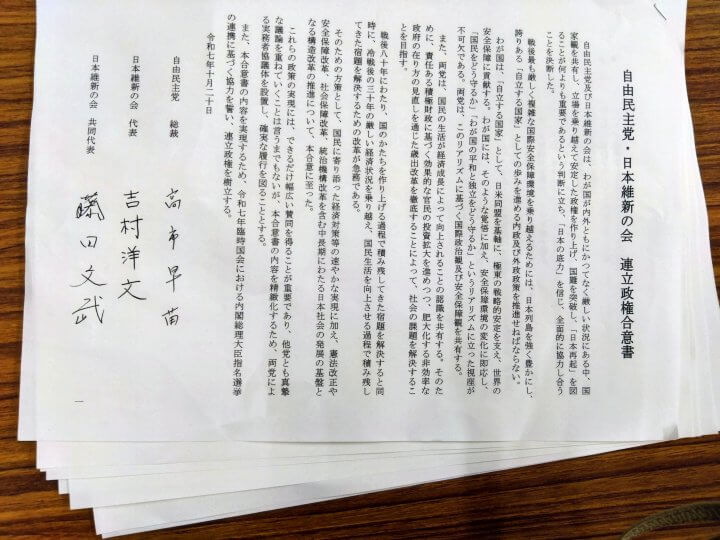 自由民主党・日本維新の会　連立政権合意書
自由民主党及び日本維新の会は、わが国が内外ともにかつてなく厳しい状況にある中、国
家観を共有し、立場を乗り越えて安定した政権を作り上げ、国難を突破し、「日本再起」を図
ることが何よりも重要であるという判断に立ち、「日本の底力」を信じ、全面的に協力し合う
ことを決断した。
戦後最も厳しく複雑な国際安全保障環境を乗り越えるためには、日本列島を強く豊かにし、
誇りある「自立する国家」としての歩みを進める内政及び外政政策を推進せねばならない。
わが国は、「自立する国家」として、日米同盟を基軸に、極東の戦略的安定を支え、世界の
安全保障に貢献する。わが国には、そのような覚悟に加え、安全保障環境の変化に即応し、
「国民をどう守るか」「わが国の平和と独立をどう守るか」というリアリズムに立った視座が
不可欠である。両党は、このリアリズムに基づく国際政治観及び安全保障観を共有する。
また、両党は、国民の生活が経済成長によって向上されることの認識を共有する。そのた
めに、責任ある積極財政に基づく効果的な官民の投資拡大を進めつつ、肥大化する非効率な
政府の在り方の見直しを通じた歳出改革を徹底することによって、社会の課題を解決するこ
とを目指す。
戦後八十年にわたり、国のかたちを作り上げる過程で積み残してきた宿題を解決すると同
時に、冷戦後の三十年の厳しい経済状況を乗り越え、国民生活を向上させる過程で積み残し
てきた宿題を解決するための改革が急務である。
そのための方策として、国民に寄り添った経済対策等の速やかな実現に加え、憲法改正や
安全保障改革、社会保障改革、統治機構改革を含む中長期にわたる日本社会の発展の基盤と
なる構造改革の推進について、本合意に至った。
これらの政策の実現には、できるだけ幅広い賛同を得ることが重要であり、他党とも真摯
な議論を重ねていくことは言うまでもないが、本合意書の内容を精緻化するため、両党によ
る実務者協議体を設置し、確実な履行を図ることとする。
また、本合意書の内容を実現するため、令和七年臨時国会における内閣総理大臣指名選挙
の連携に基づく協力を誓い、連立政権を樹立する。
令和七年十月二十日
自由民主党　総裁　高市早苗
日本維新の会　代表　吉村洋文
日本維新の会　共同代表　藤田文武
一